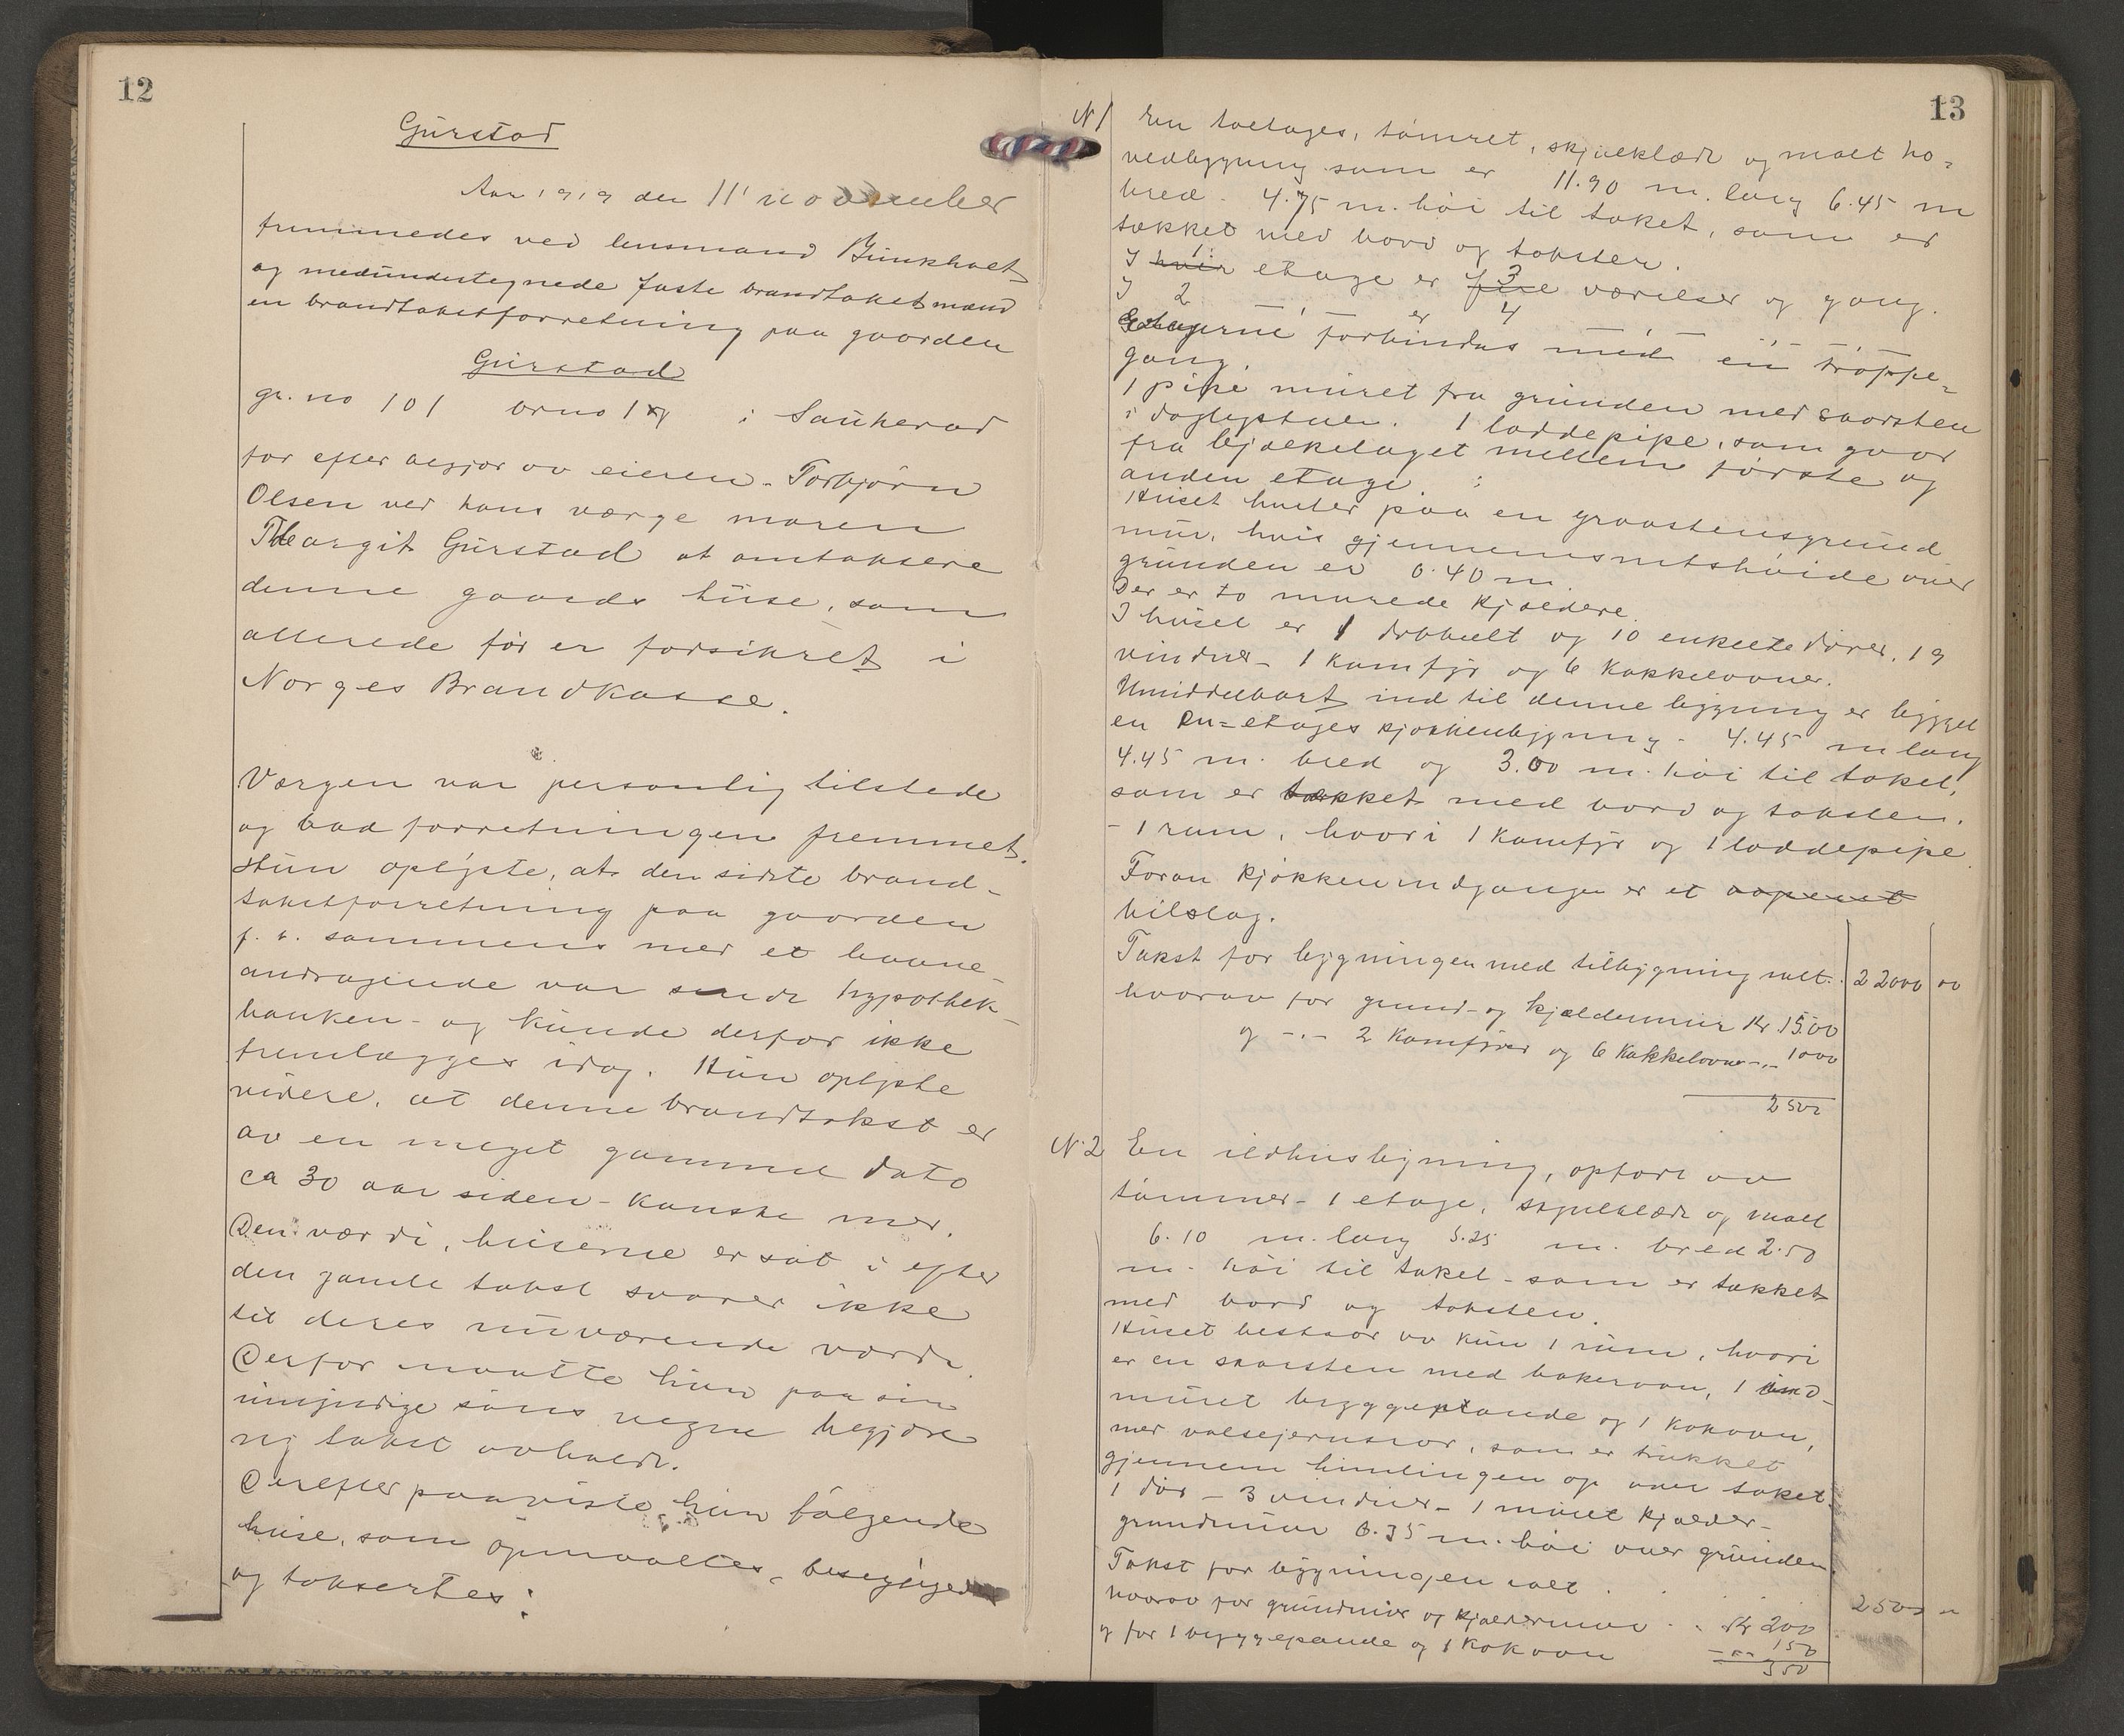 12
Gurstad
Aar 1919 den 11' november
fremmedes ved lensmand Bunkholt
og medundertegnede faste brandtakstmænd
en brandtakstforretning paa gaarden
Gurstad
gr. no 101 brno 1 i Sauherad
for efter begjær av eieren - Torbjørn
Olsen ved hans værge moren
Margit Gurstad at omtaksere
denne gaards huse, som
allerede før er forsikret i
Norges Brandkasse.
Værgen var personlig tilstede
og bad forretningen fremmet.
Hun oplyste, at den sidste brand-
takstforretning paa gaarden
f. t. sammens med et laane-
andragende var sendt hypothek-
banken - og kunde derfor ikke
fremlægges idag. Hun oplyste
videre, at denne brandtakst er
av en meget gammel dato
ca 30 aar siden - kanske mer.
Den værdi, husene er sat i efter
den gamle takst svarer ikke
til deres nuværende værdi.
Derfor maatte hun paa sin
umyndige søns vegne begjære
ny takst avholdt.
Derefter paaviste hun følgende
huse, som opmaaltes, besigtigedes
og taksertes:
13
N 1 En toetages, tømret, skjulklædt og malt ho-
vedbygning som er 11.90 m. lang 6.45 m
bred - 4.75 m. høi til taket, som er
tækket med bord og taksten.
I hver 1 etage er fire 3 værelser og gang.
I 2 - " - er 4 - " - " -
Etagerne forbindes med en trappe-
gang.
1 pipe muret fra grunden med skorsten
i dagligstuen. 1 loddepipe, som gaar
fra bjælkelaget mellem første og
anden etage.
Huset hviler paa en graastensgrund
mur, hvis gjennemsnitshøide over
grunden er 0.40 m.
Der er to murede kjældere.
I huset er 1 dobbelt og 10 enkelte dører, 19
vinduer - 1 komfyr og 6 kakkelovner.
Umiddelbart ind til denne bygning er bygget
en en-etages kjøkkenbygning - 4.45 m lang
4.45 m. bred og 3.00 m. høi til taket,
som er tækket med bord og taksten.
- 1 rum, hvori 1 komfyr og 1 loddepipe.
Foran kjøkkenindgangen er et aapent
bilslag.
Takst for bygningen med tilbygning ialt. 22000 00
hvorav for grund- og kjældermur Kr 1500
og -"- 2 komfyrer og 6 kakkelovner -"- 1000
2500
N. 2 En ildhusbygning, opført av
tømmer - 1 etage, skjulklædt og malt
6.10 m. lang 5.25 m. bred 2.50
m. høi til taket - som er tækket
med bord og taksten.
Huset bestaar av kun 1 rum, hvori
er en skorsten med bakerovn, 1 ind-
muret bryggepande og 1 kokovn,
med valsejernsrør, som er trukket
gjennem himlingen op over taket.
1 dør - 3 vinduer - 1 muret kjælder -
grundmur 0.35 m. høi over grunden.
Takst for bygningen ialt . 2500 "
hvorav for grundmur og kjældermur . . Kr 200
og for 1 bryggepande og 1 kokovn - " - 150
350